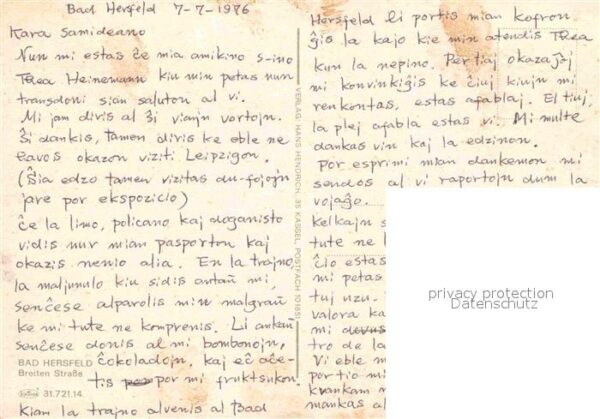 Bad Hersfeld 7-7-1976
Kara Samideano
Nun mi estas ĉe mia amikino s-ino
Thea Heinemann kiu min petas nun
transdoni sian saluton al vi.
Mi jam diris al ŝi viajn vortojn.
Ŝi dankis, tamen diris ke eble ne
havos okazon viziti Leipzigon.
(Ŝia edzo tamen vizitas du-fojojn
jare por ekspozicio)
Ĉe la limo, policano kaj doganisto
vidis nur mian pasporton kaj
okazis nenio alia. En la trajno,
la maljunulo kiu sidis antaŭ mi,
senĉese alparolis min malgraŭ
ke mi tute ne komprenis. Li ankaŭ
senĉese donis al mi bombonojn,
ĉokoladojn, kaj eĉ aĉe-
tis por mi fruktsukon.
Kiam la trajno alvenis al Bad
BAD HERSFELD
Breiten Straße
31.721.14
VERLAG HANS HENDRICH, 35 KASSEL, POSTFACH 101651
Hersfeld li portis mian kofron
ĝis la kajo kie min atendis Thea
kun la nepino. Per tiaj okazaĵoj
mi konvinkiĝis ke ĉiuj kiujn mi
renkontas, estas afablaj. El tiuj,
la plej afabla estas vi. Mi multe
dankas vin kaj la edzinon.
Por esprimi mian dankemon mi
sendos al vi raportojn dum la
vojaĝo.
Kelkajn s
tute ne
ĉio estas
mi petas
tuj uzu.
valora ka
mi
tro de la
Vi eble m
portio mi
kvankam
mankas al
privacy protection
Datenschutz